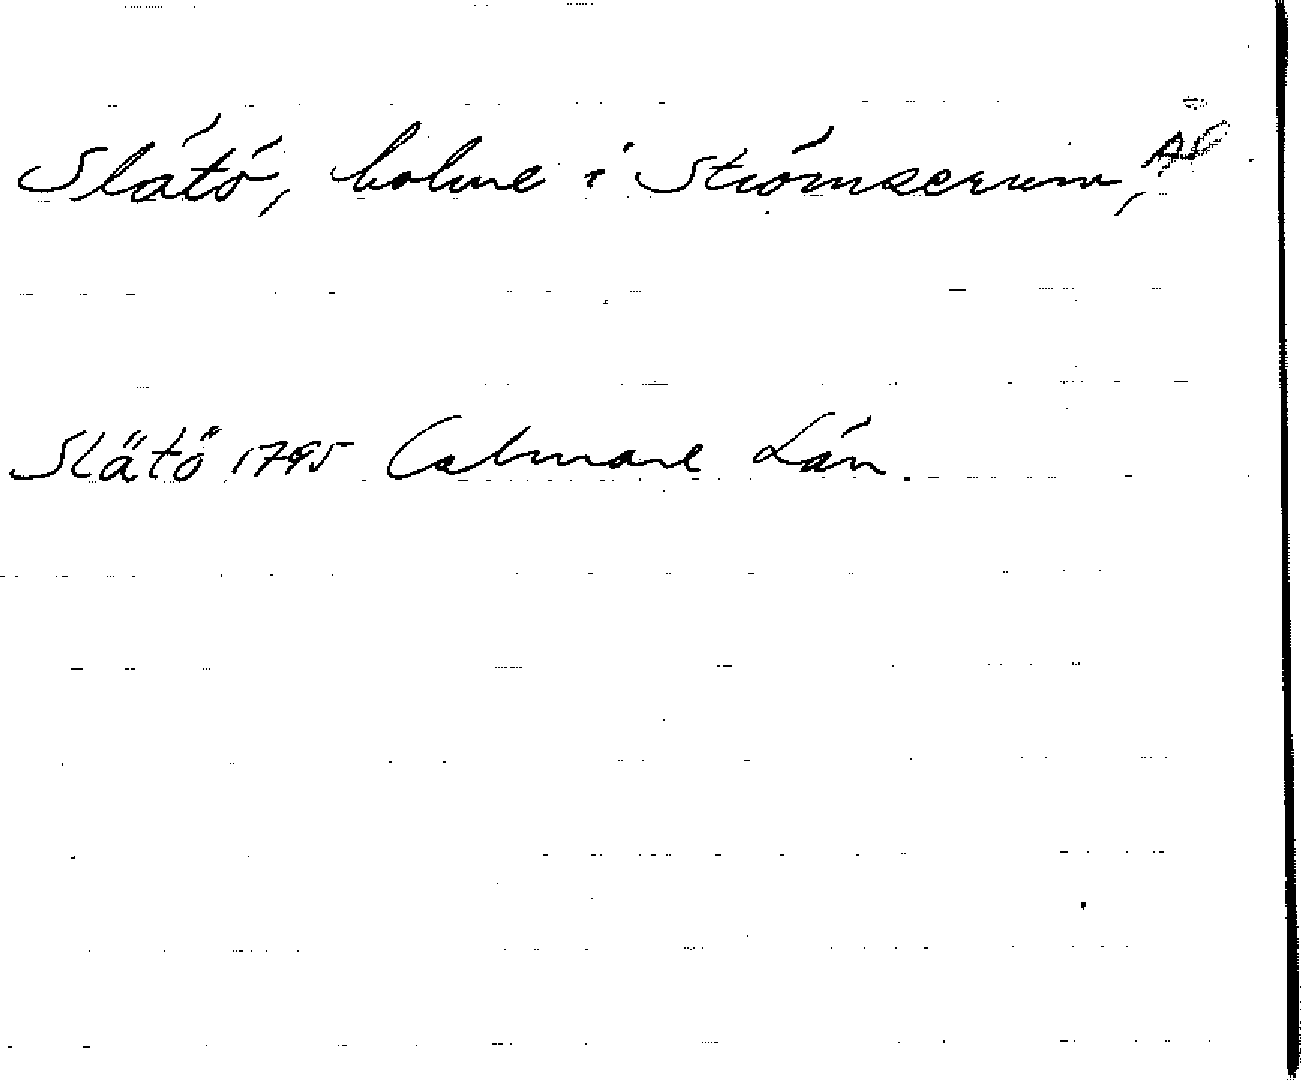 Slätö, holme i Strömserum,
Slätö 1795 Calmare Län